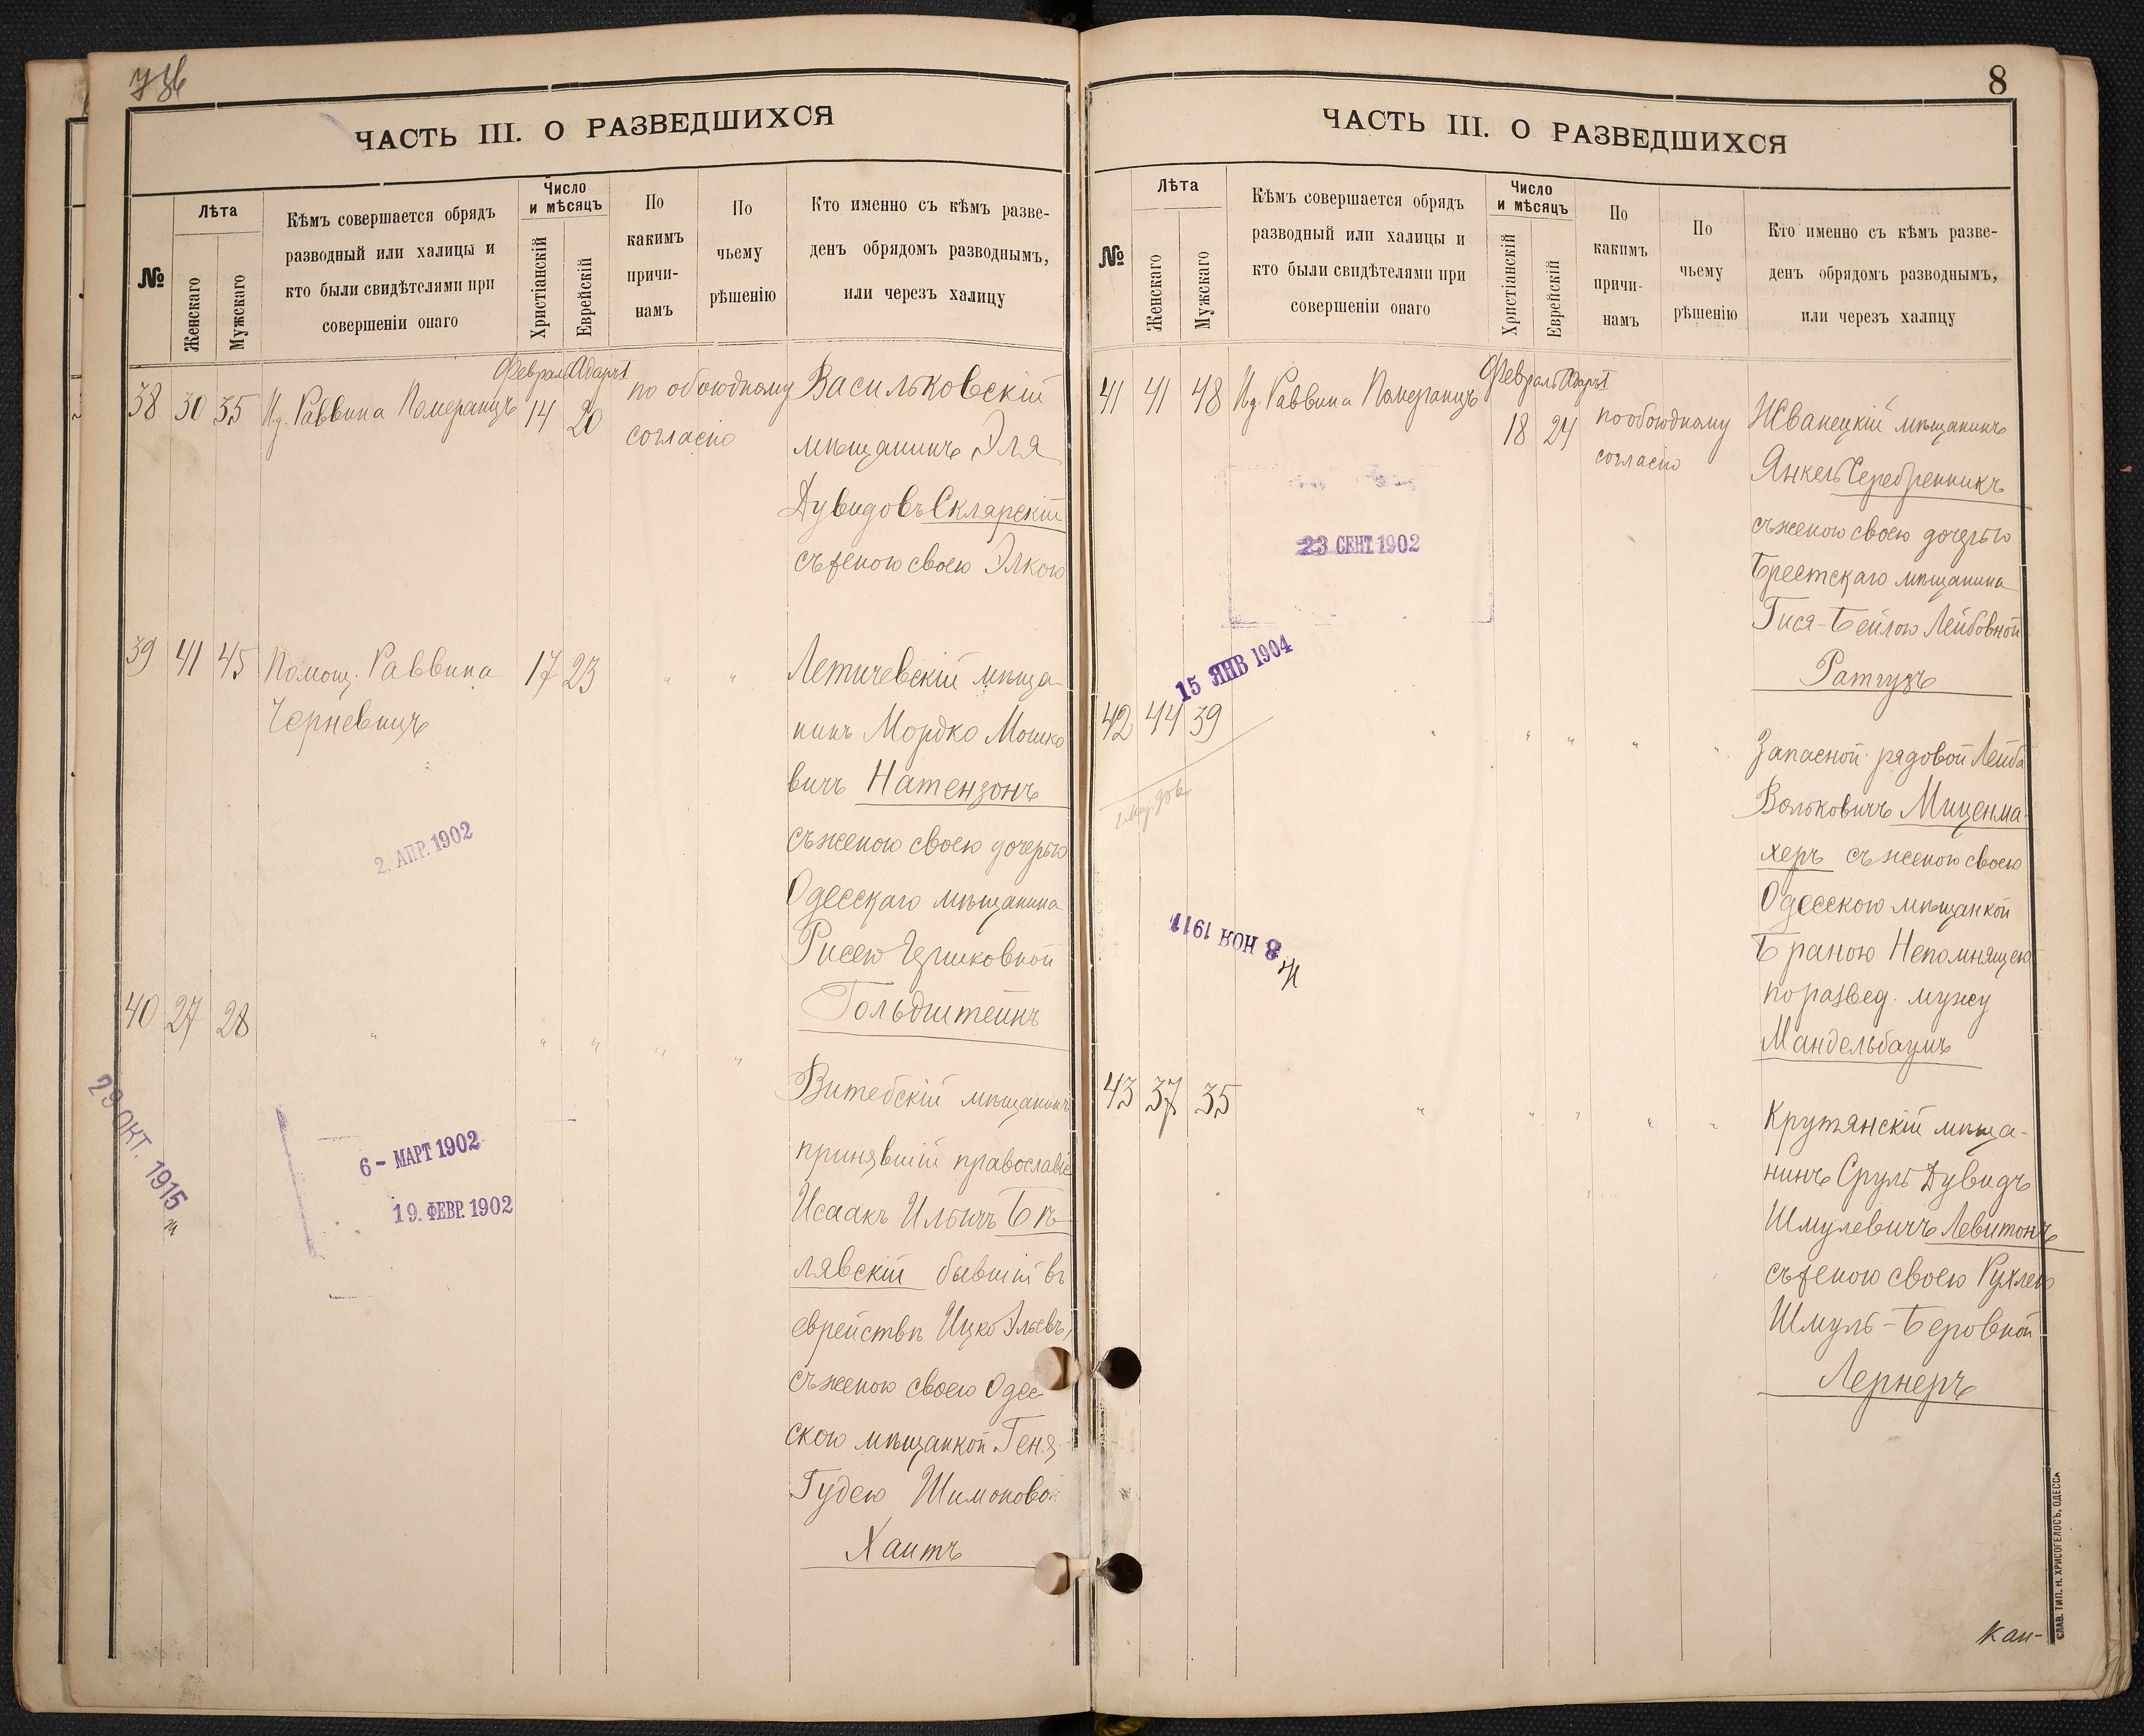 ЧАСТЬ III. О РАЗВЕДШИХСЯ
№
Лѣта
Женскаго
Мужскаго
Кѣмъ совершается обрядъ
разводный или халицы и
кто были свидѣтелями при
совершеніи онаго
Число
и мѣсяцъ
Христіанскій
Еврейскій
По
какимъ
причи-
намъ
По
чьему
рѣшенію
Кто именно съ кѣмъ разве-
денъ обрядомъ разводнымъ,
или черезъ халицу
Февраль Адаръ I
38 30 35 И.д. Раввина Померанцъ 14 20
по обоюдному
согласію
Васильковскій
мѣщанинъ Эля
Дувидовъ Склярскій
съ женою своею Элкою
39 41 45 Помощ. Раввина 17 23 " "
Черневичъ
Летичевскій мѣща-
нинъ Мордко Мошко
вичъ Натензонъ
съ женою своею дочерью
Одесскаго мѣщанина
Рисею Гершковной
Гольдштейнъ
2. АПР. 1902
40 27 28 " " " " "
Витебскій мѣщанинъ
принявшій православіе
Исаакъ Ильичъ Бѣ-
лявскій бывшій въ
еврействѣ Ицко Эльевъ,
съ женою своею Одес
скою мѣщанкой Геня
Гудею Шимоновой
Хаитъ
29 ОКТ. 1915
6 - МАРТ 1902
19. ФЕВР. 1902
8
ЧАСТЬ III. О РАЗВЕДШИХСЯ
№
Лѣта
Женскаго
Мужскаго
Кѣмъ совершается обрядъ
разводный или халицы и
кто были свидѣтелями при
совершеніи онаго
Число
и мѣсяцъ
Христіанскій
Еврейскій
По
какимъ
причи-
намъ
По
чьему
рѣшенію
Кто именно съ кѣмъ разве-
денъ обрядомъ разводнымъ,
или черезъ халицу
Февраль Адаръ I
41 41 48 И.д. Раввина Померанцъ 18 24
по обоюдному
согласію
Жванецкій мѣщанинъ
Янкель Серебренникъ
съ женою своею дочерью
Брестскаго мѣщанина
Гися-Бейлою Лейбовной
Ратгузъ
23 СЕНТ 1902
15 ЯНВ 1904
42 44 39 " " " " "
Запасной рядовой Лейба
Вольковичъ Миценма-
херъ съ женою своею
Одесскою мѣщанкой
Браною Непомнящею
по развед. мужу
Мандельбаумъ
8 НОЯ 1911
43 37 35 " " " " "
Крутянскій мѣща-
нинъ Сруль Дувидъ
Шмулевичъ Левитонъ
съ женою своею Рухлею
Шмуль-Беровной
Лернеръ
СЛАВ. ТИП. Н. ХРИСОГЕЛОСЪ, ОДЕССА